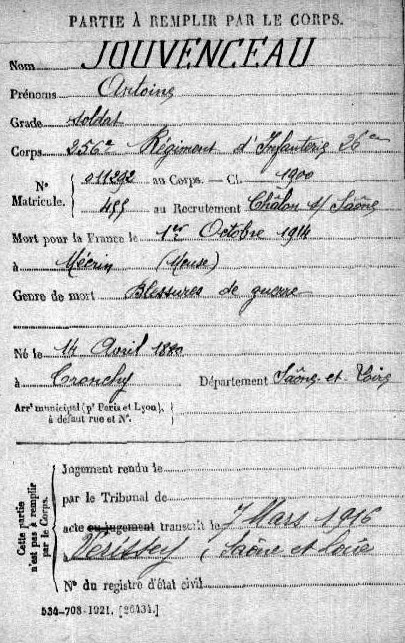 PARTIE À REMPLIR PAR LE CORPS.
Nom JOUVENCEAU
Prénoms Antoine
Grade soldat
Corps 256e Régiment d'Infanterie 26e Cie
N° Matricule. { 011292 au Corps. — Cl. 1900
455 au Recrutement Châlon s/ Saône
Mort pour la France le 1er Octobre 1914
à Mécrin (Meuse)
Genre de mort Blessures de guerre
Né le 14 Avril 1880
à Tronchy Département Saône-et-Loire
Arrt municipal (pr Paris et Lyon), à défaut rue et N°.
Cette partie n'est pas à remplir par le Corps.
Jugement rendu le
par le Tribunal de
acte ou jugement transcrit le 7 Mars 1916
à Verissey (Saône et Loire
N° du registre d'état civil
534-708-1921. [26434.]